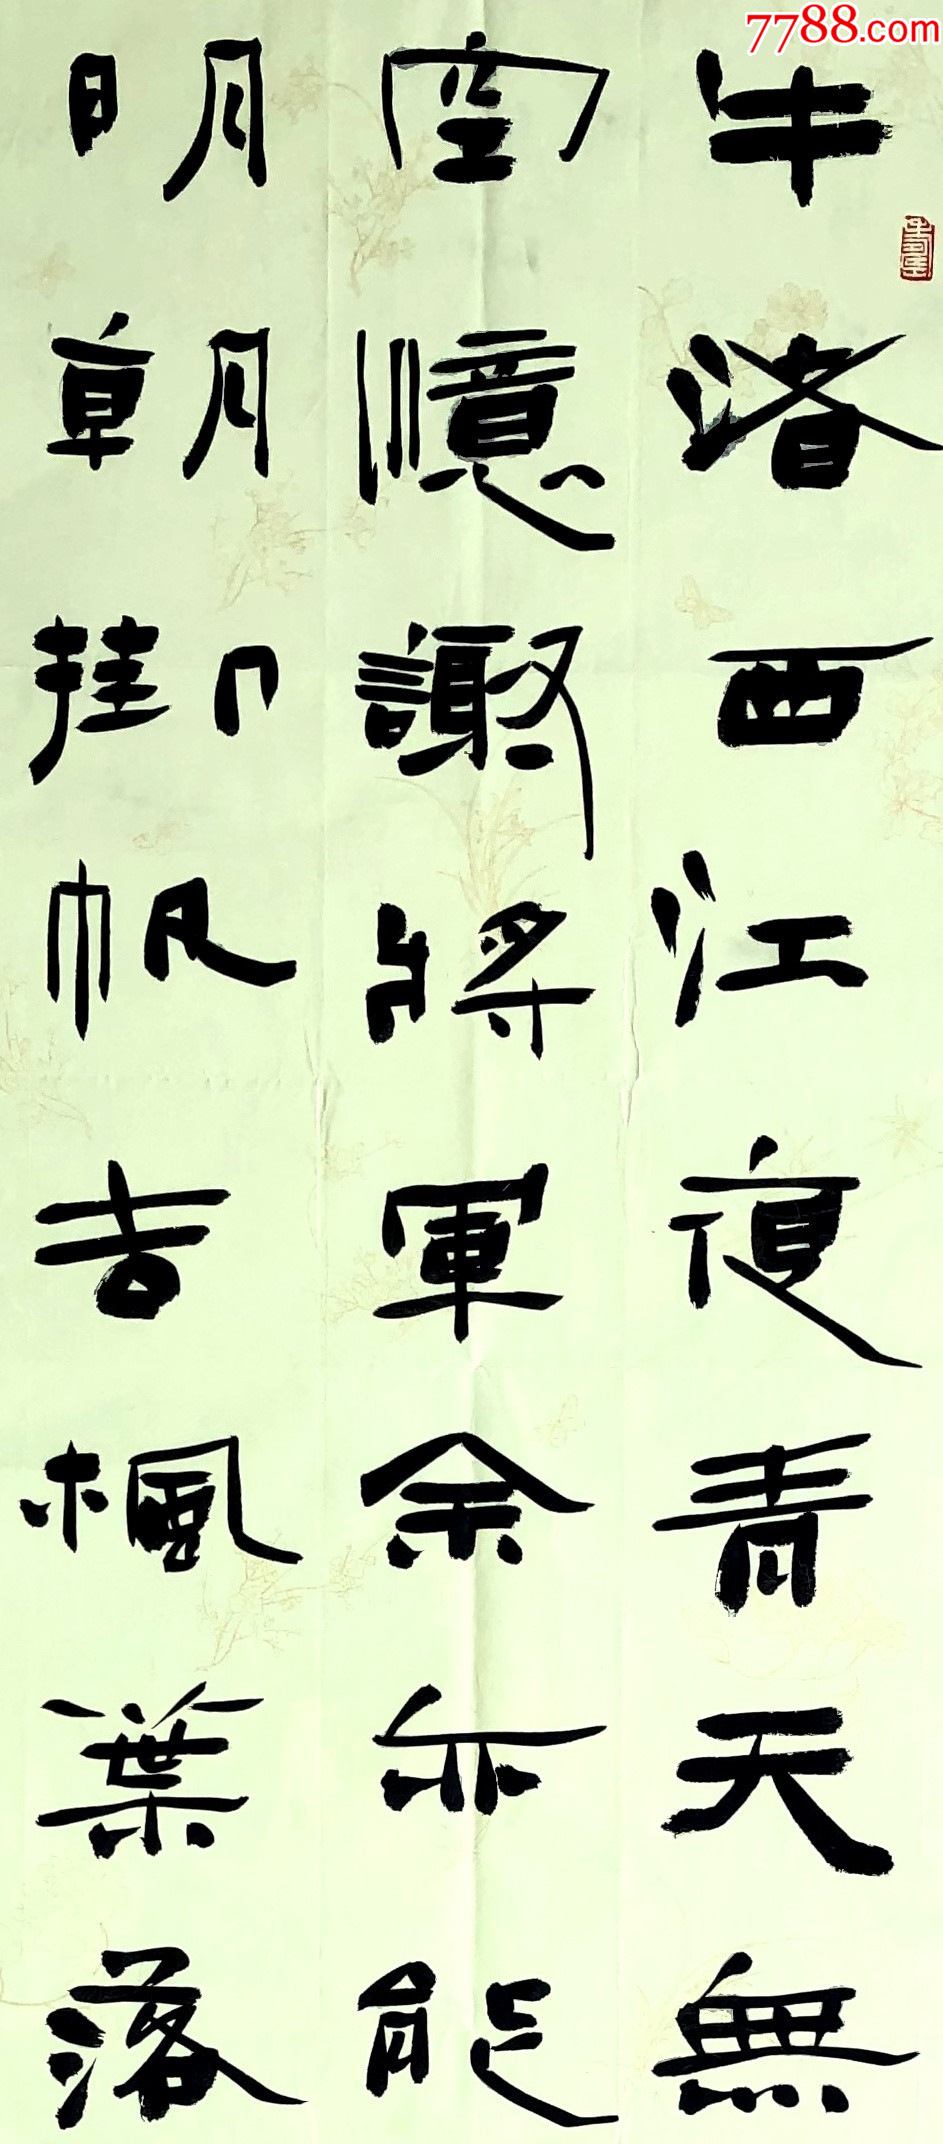 7788.com
牛渚西江夜青天無
空憶謝將軍余亦能
明朝掛帆去楓葉落